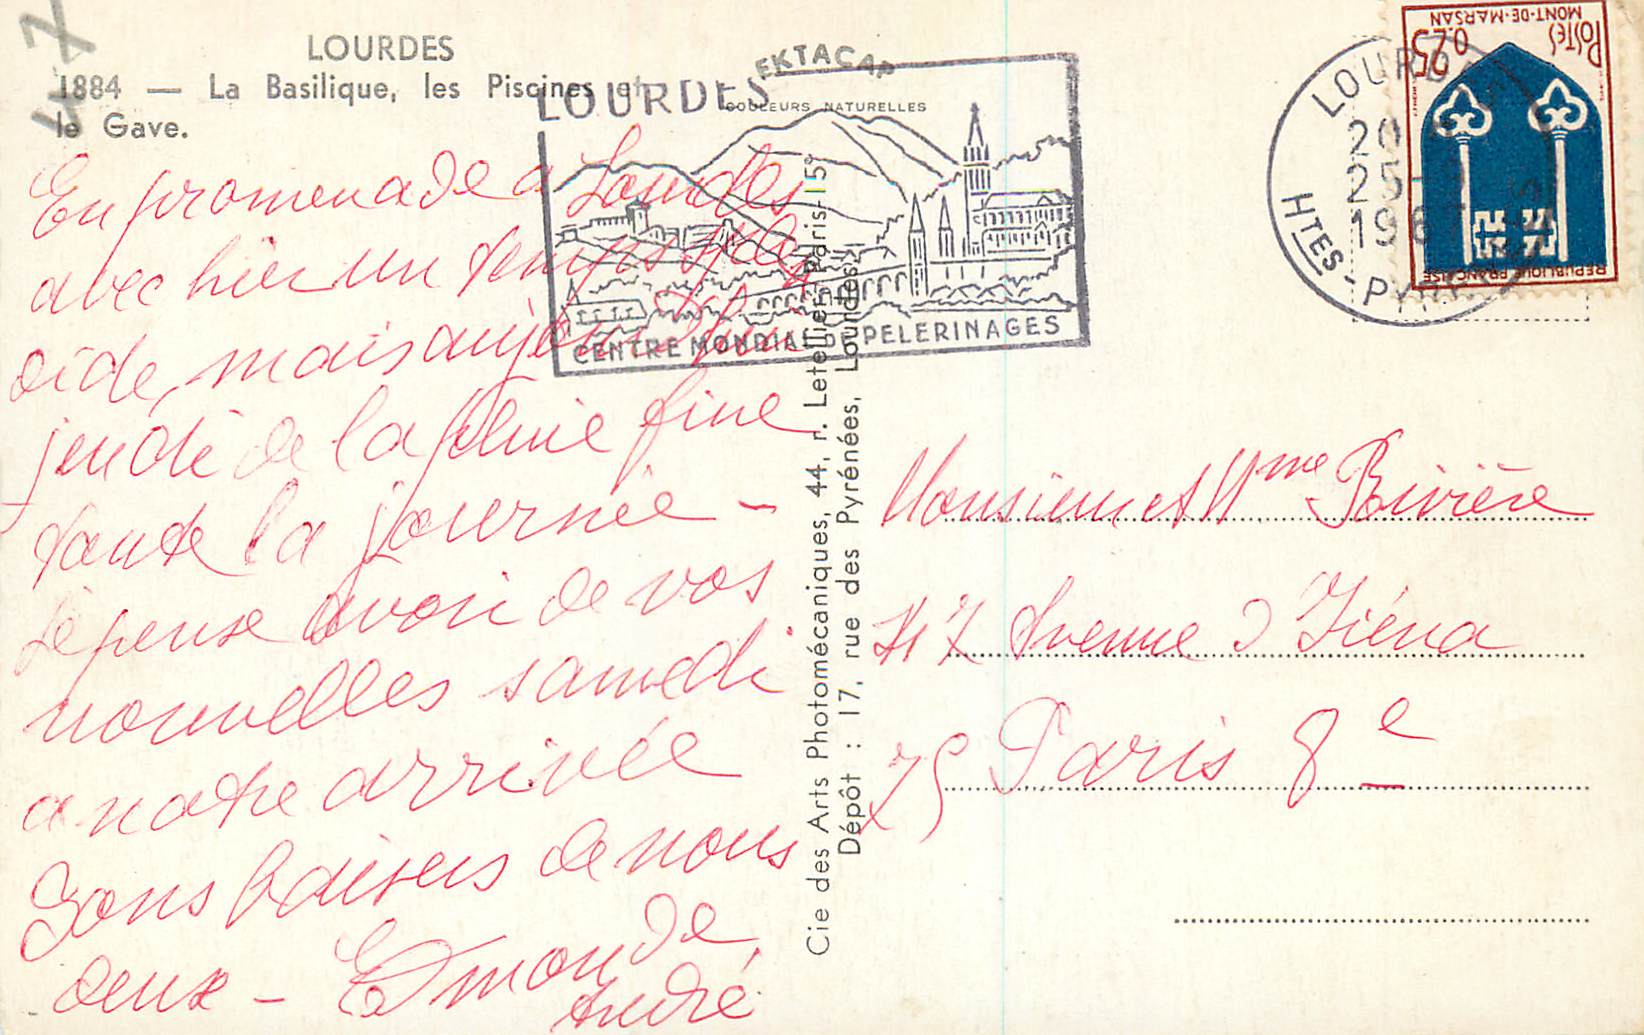 47
LOURDES
1884 — La Basilique, les Piscines et
le Gave.
EKTACAP
COULEURS NATURELLES
LOURDES
CENTRE MONDIAL DE PELERINAGES
LOURDES
20
25-
196
HTES-PYR
POSTES
0.25
MONT-DE-MARSAN
REPUBLIQUE FRANÇAISE
En promenade a Lourdes
avec hier un temps splen
dide, mais aujour d'hui
jeudi de la pluie fine
toute la journée -
Je pense avoir de vos
nouvelles samedi
a notre arrivée
Bons baisers de nous
deux - Edmonde
André
Cie des Arts Photomécaniques, 44, r. Letellier, Paris-15e
Dépôt : 17, rue des Pyrénées, Lourdes
Monsieur et Mme Rivière
47 Avenue d'Iéna
75 Paris 8e